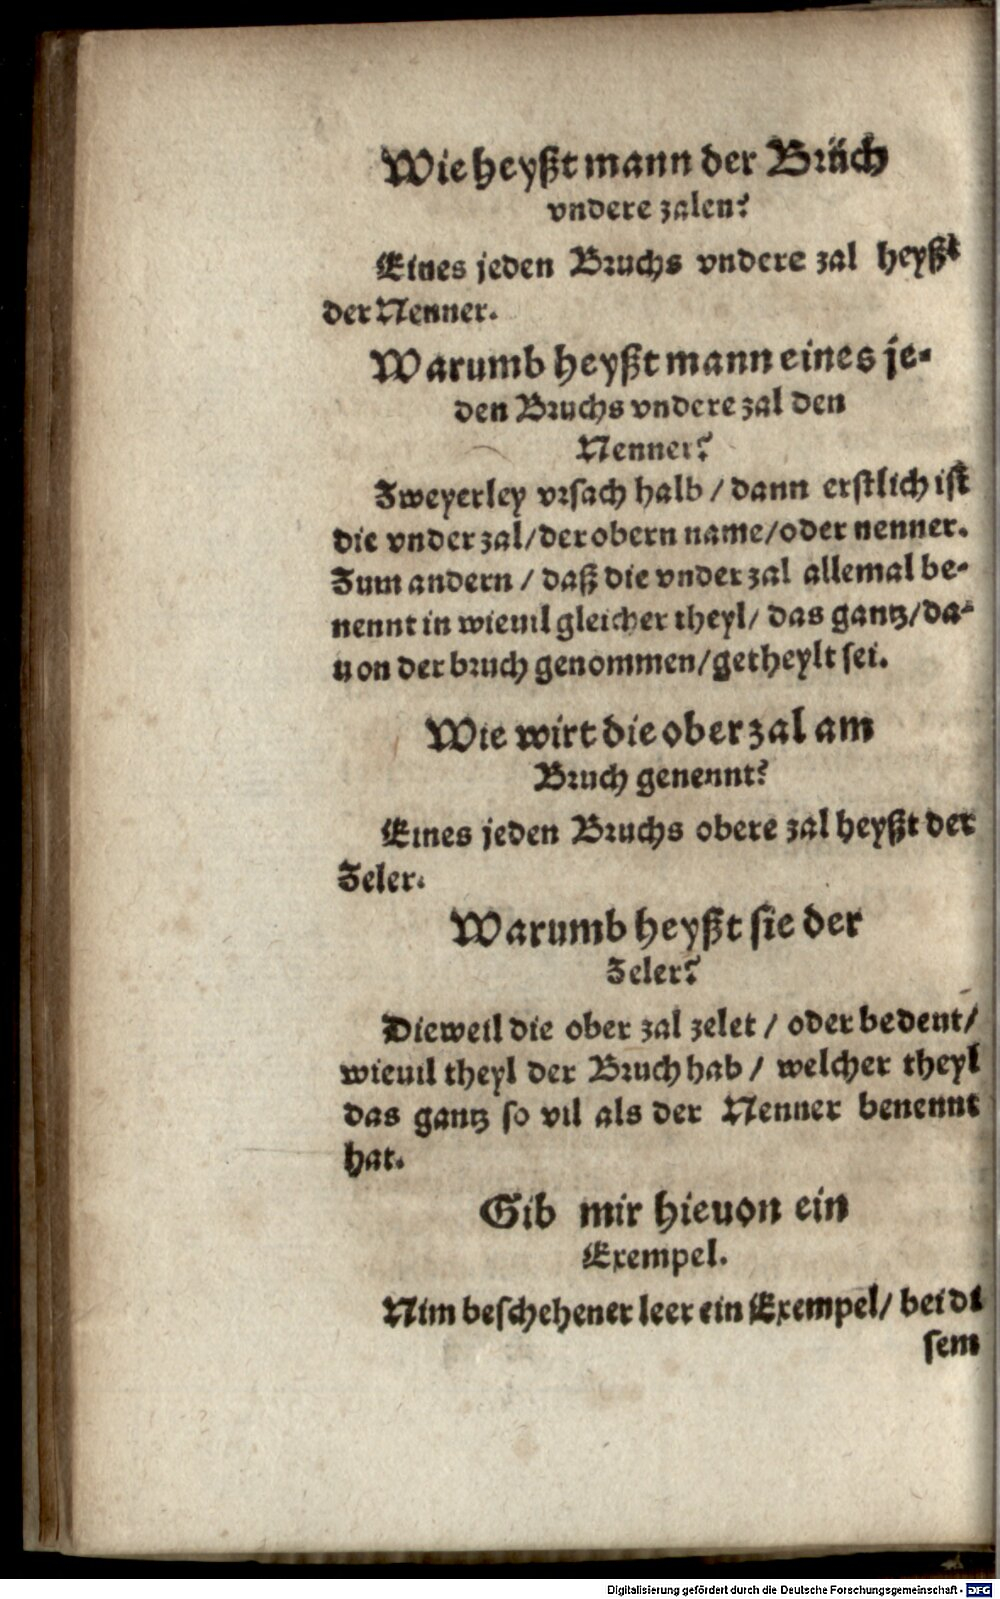 Wie heyßt mann der Brüch
vndere zalen?
Eines jeden Bruchs vndere zal heyßt
der Nenner.
Warumb heyßt mann eines je-
den Bruchs vndere zal den
Nenner?
Zweyerley vrsach halb / dann erstlich ist
die vnder zal / der obern name / oder nenner.
Zum andern / daß die vnder zal allemal be-
nennt in wieuil gleicher theyl / das gantz / da-
uon der bruch genommen / getheylt sei.
Wie wirt die ober zal am
Bruch genennt?
Eines jeden Bruchs obere zal heyßt der
Zeler.
Warumb heyßt sie der
Zeler?
Dieweil die ober zal zelet / oder bedeut /
wieuil theyl der Bruch hab / welcher theyl
das gantz so vil als der Nenner benennt
hat.
Gib mir hieuon ein
Exempel.
Nim beschehener leer ein Exempel / bei di
sem
Digitalisierung gefördert durch die Deutsche Forschungsgemeinschaft - DFG